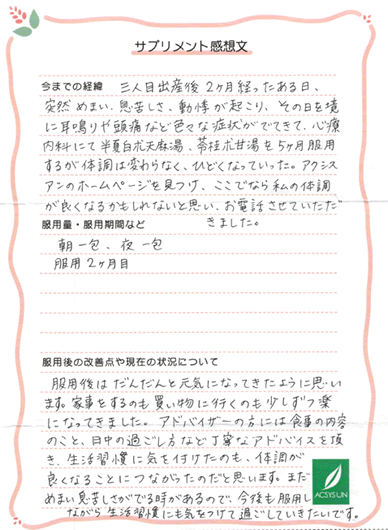 サプリメント感想文
今までの経緯 三人目出産後2ヶ月経ったある日、
突然めまい、息苦しさ、動悸が起こり、その日を境
に耳鳴りや頭痛など色々な症状がでてきて、心療
内科にて半夏白朮天麻湯、苓桂朮甘湯を5ヶ月服用
するが体調は変わらなく、ひどくなっていった。アクシス
アンのホームページを見つけ、ここでなら私の体調
が良くなるかもしれないと思い、お電話させていただ
きました。
服用量・服用期間など
朝一包、夜一包
服用2ヶ月目
服用後の改善点や現在の状況について
服用後はだんだんと元気になってきたように思い
ます。家事をするのも買い物に行くのも少しずつ楽
になってきました。アドバイザーの方には食事の内容
のこと、日中の過ごし方など丁寧なアドバイスを頂
き、生活習慣に気を付けたのも、体調が
良くなることにつながったのだと思います。まだ
めまい息苦しさがでる時があるので、今後も服用し
ながら生活習慣にも気をつけて過ごしていきたいです。
ACSYSUN